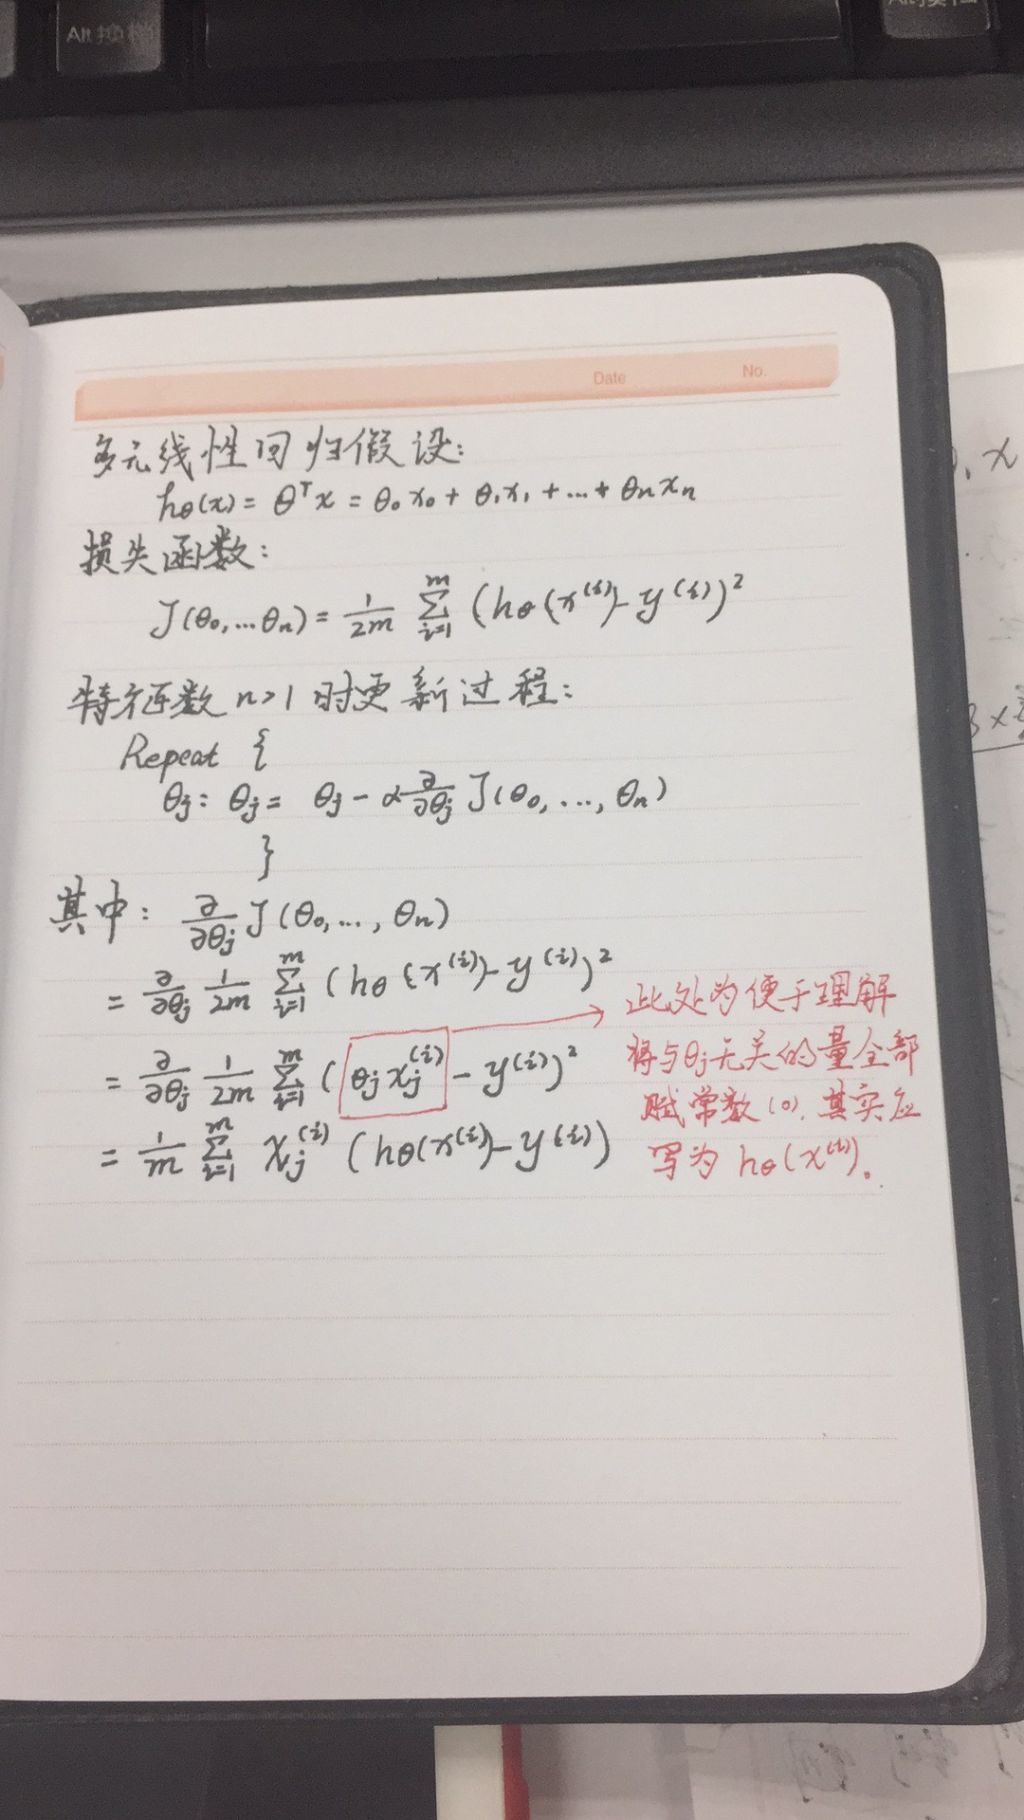 Alt 换档
Date No.
多元线性回归假设:
hθ(x) = θᵀx = θ₀x₀ + θ₁x₁ + … + θₙxₙ
损失函数:
J(θ₀, … θₙ) = 1/2m ∑_{i=1}^{m} (hθ(x⁽ⁱ⁾) - y⁽ⁱ⁾)²
特征数 n>1 时更新过程:
Repeat {
θj : θj = θj - α ∂/∂θj J(θ₀, …, θₙ)
}
其中: ∂/∂θj J(θ₀, …, θₙ)
= ∂/∂θj 1/2m ∑_{i=1}^{m} (hθ(x⁽ⁱ⁾) - y⁽ⁱ⁾)²
= ∂/∂θj 1/2m ∑_{i=1}^{m} (θj xj⁽ⁱ⁾ - y⁽ⁱ⁾)²
= 1/m ∑_{i=1}^{m} xj⁽ⁱ⁾ (hθ(x⁽ⁱ⁾) - y⁽ⁱ⁾)
此处为便于理解
将与θj无关的量全部
赋常数(0). 其实应
写为 hθ(x⁽ⁱ⁾).